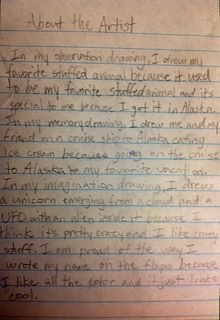 About the Artist
In my observation drawing, I drew my
favorite stuffed animal because it used
to be my favorite stuffed animal and it's
special to me because I got it in Alaska.
In my memory drawing, I drew me and my
friend on a cruise ship to Alaska eating
ice cream because going on the cruise
to Alaska be my favorite vacation.
In my imagination drawing, I drew
a unicorn emerging from a cloud and a
UFO with an alien inside it because I
think it's pretty crazy and I like crazy
stuff. I am proud of the way I
wrote my name on the flaps because
I like all the color and it just looks
cool.